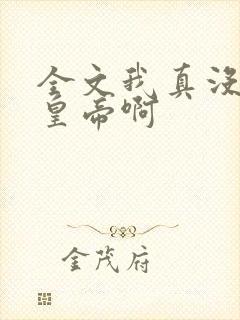 全文我真没
皇帝啊
金茂府